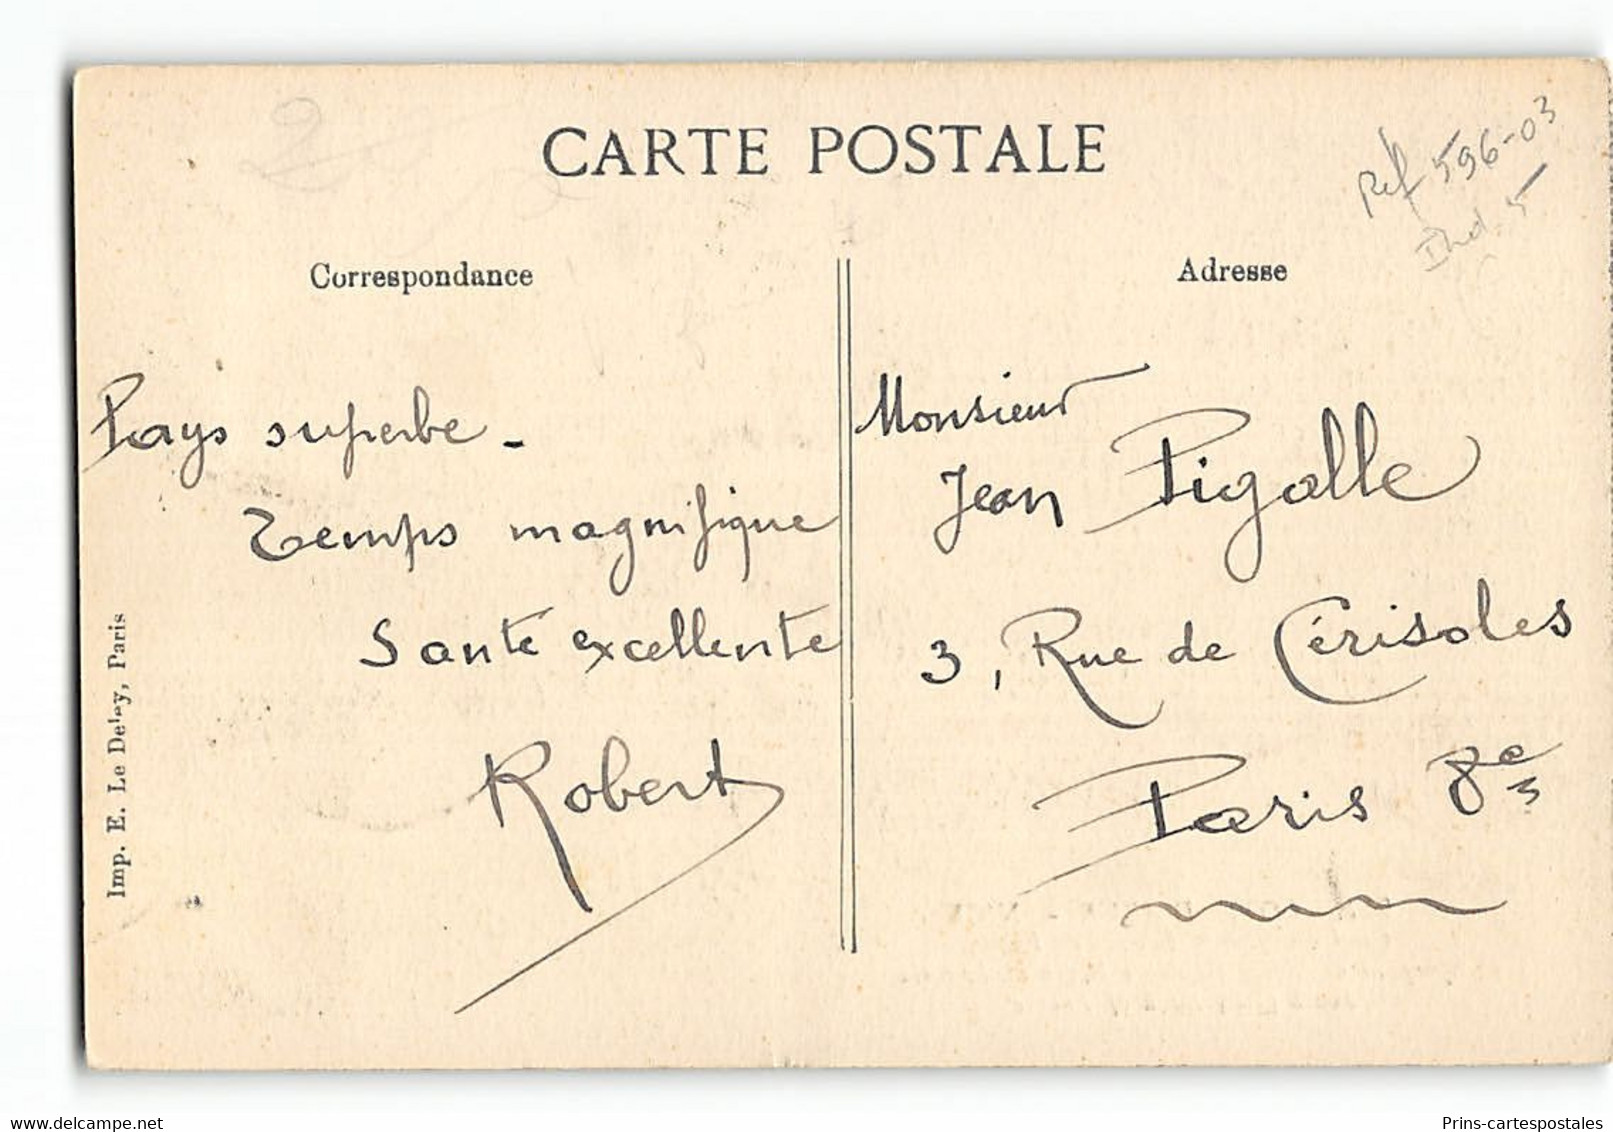 CARTE POSTALE
Ref 596-03
Ind. 5
Correspondance
Adresse
Pays superbe -
Temps magnifique
Santé excellente
Robert
Monsieur
Jean Pigalle
3, Rue de Cérisoles
Paris 8e
Imp. E. Le Deley, Paris
delcampe.net
Prins-cartespostales